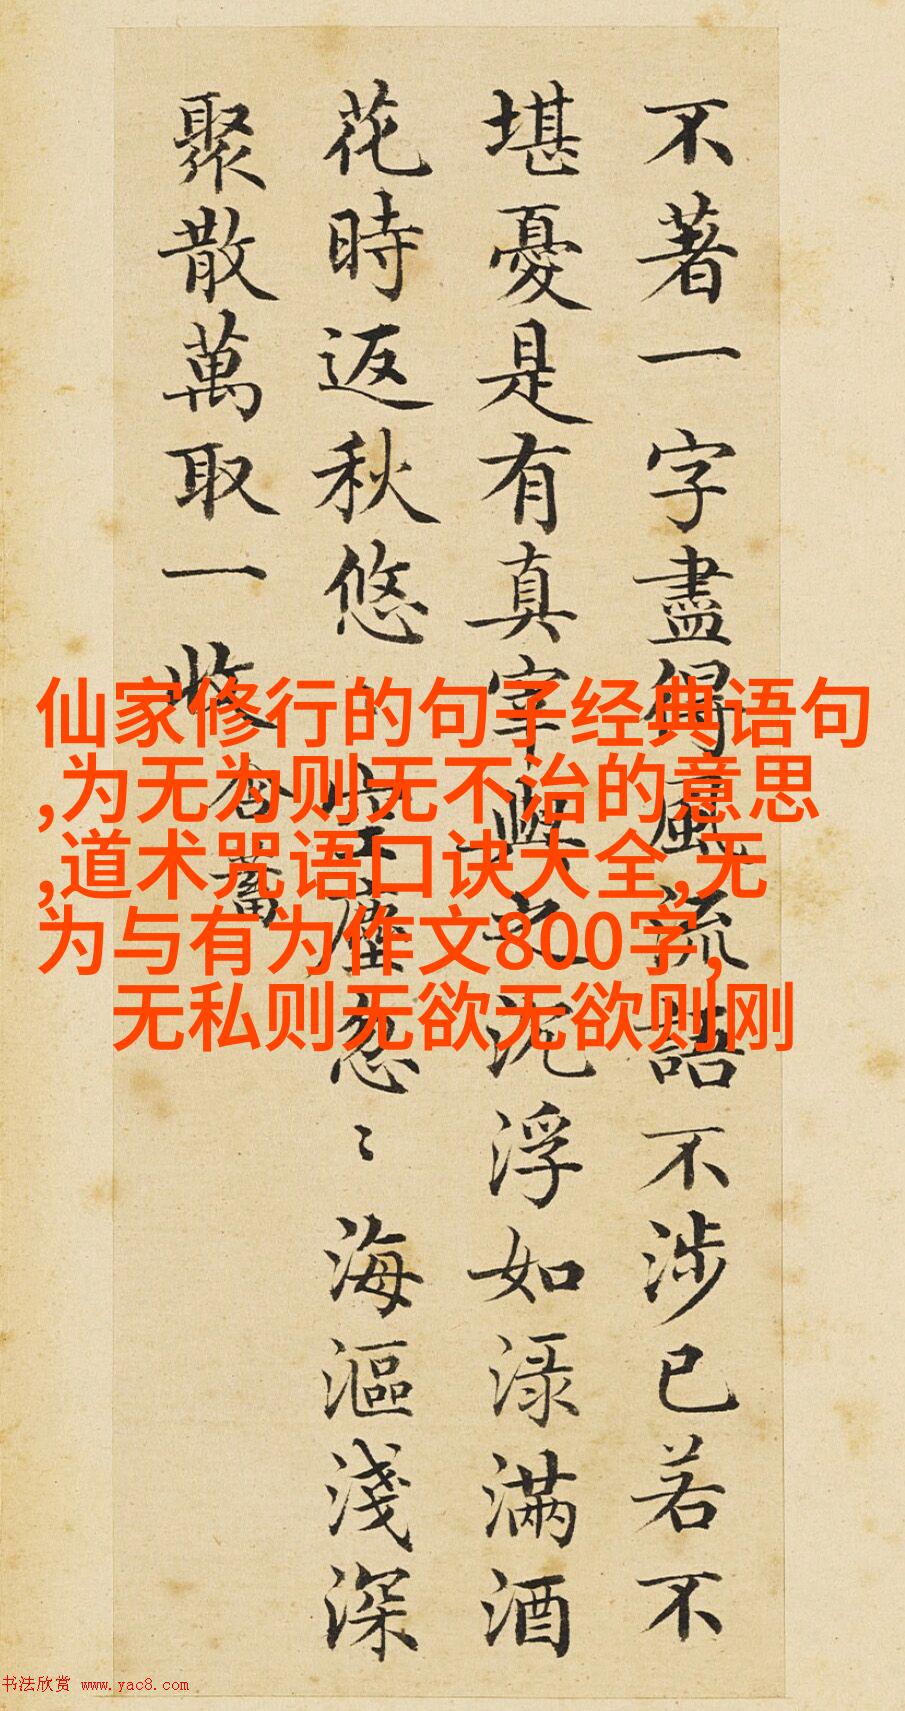 不著一字盡得風流語不涉已若不
堪憂是有真宰與之沈浮如渌滿酒
花時返秋悠〻空塵忽〻海漚淺深
聚散萬取一收 含蓄
仙家修行的句子经典语句
,为无为则无不治的意思
,道术咒语口诀大全,无
为与有为作文800字,
无私则无欲无欲则刚
书法欣赏 www.yac8.com